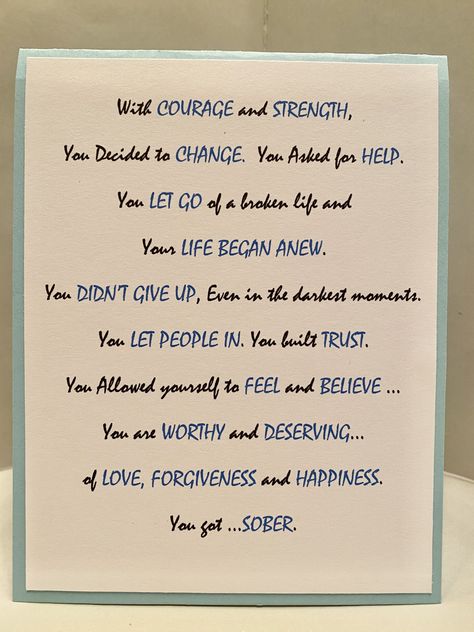 With COURAGE and STRENGTH,
You Decided to CHANGE. You Asked for HELP.
You LET GO of a broken life and
Your LIFE BEGAN ANEW.
You DIDN'T GIVE UP, Even in the darkest moments.
You LET PEOPLE IN. You built TRUST.
You Allowed yourself to FEEL and BELIEVE ...
You are WORTHY and DESERVING...
of LOVE, FORGIVENESS and HAPPINESS.
You got ...SOBER.